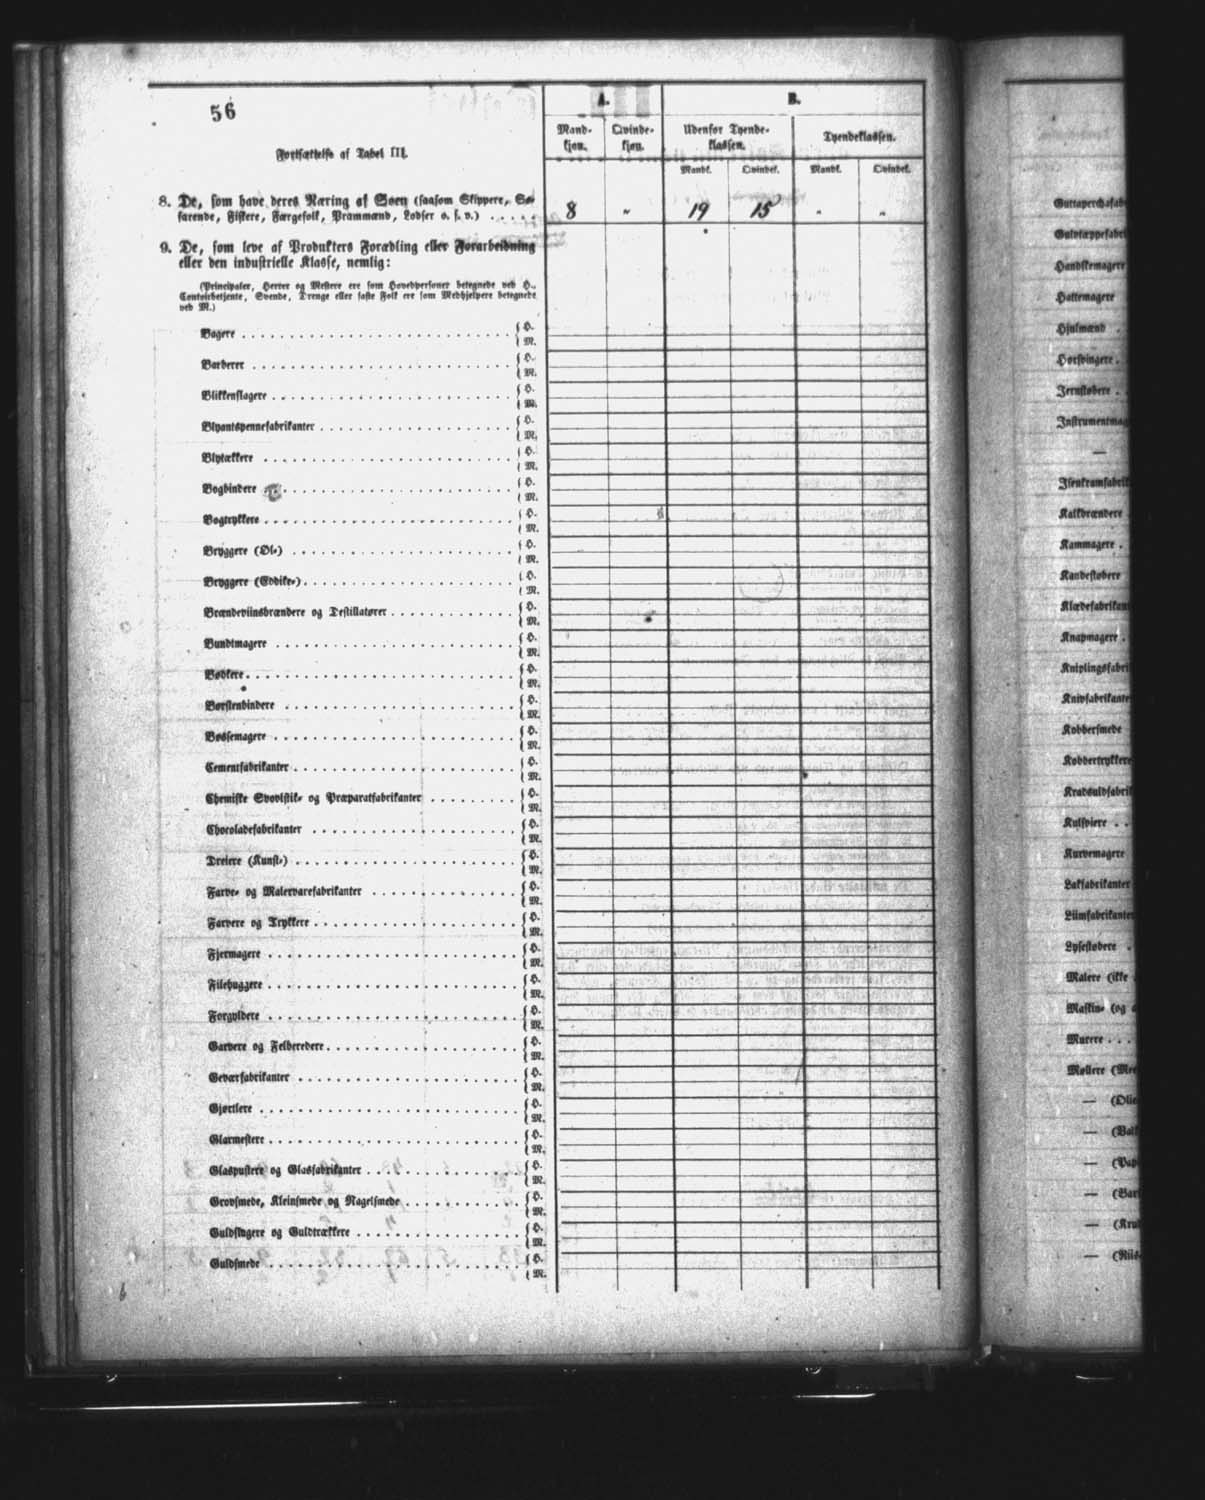 56
Fortsættelse af Tabel III.
A.
B.
Mand-
kjøn.
Qvinde-
kjøn.
Udenfor Tyende-
klassen.
Tyendeklassen.
Mandk.
Qvindek.
Mandk.
Qvindek.
8. De, som have deres Næring af Søen (saasom Skippere, Sø-
farende, Fiskere, Færgefolk, Prammænd, Lodser o. s. v.) . . . . 8 " 19 15 " "
9. De, som leve af Produkters Forædling eller Forarbeidning
eller den industrielle Klasse, nemlig:
(Principaler, Herrer og Mestere ere som Hovedpersoner betegnede ved H.,
Contoirbetjente, Svende, Drenge eller faste Folk ere som Medhjelpere betegnede
ved M.)
Bagere { H.
{ M.
Barberer { H.
{ M.
Blikkenslagere { H.
{ M.
Blyantspennefabrikanter { H.
{ M.
Blytækkere { H.
{ M.
Bogbindere { H.
{ M.
Bogtrykkere { H.
{ M.
Bryggere (Øl-) { H.
{ M.
Bryggere (Eddike-) { H.
{ M.
Brændeviinsbrændere og Destillatører { H.
{ M.
Bundtmagere { H.
{ M.
Bødkere { H.
{ M.
Børstenbindere { H.
{ M.
Bøssemagere { H.
{ M.
Cementfabrikanter { H.
{ M.
Chemiske Svovlstik- og Præparatfabrikanter { H.
{ M.
Chocoladefabrikanter { H.
{ M.
Dreiere (Kunst-) { H.
{ M.
Farve- og Malervarefabrikanter { H.
{ M.
Farvere og Trykkere { H.
{ M.
Fjermagere { H.
{ M.
Filehuggere { H.
{ M.
Forgyldere { H.
{ M.
Garvere og Felberedere { H.
{ M.
Geværfabrikanter { H.
{ M.
Gjørtlere { H.
{ M.
Glarmestere { H.
{ M.
Glaspustere og Glasfabrikanter { H.
{ M.
Grovsmede, Kleinsmede og Nagelsmede { H.
{ M.
Guldslagere og Guldtrækkere { H.
{ M.
Guldsmede { H.
{ M.
6
Guttaperchafab
Gulvtæppefabri
Handskemagere
Hattemagere
Hjulmænd .
Horsvingere .
Jernstøbere . .
Instrumentmag
—
Isenkramfabrik
Kalkbrændere
Kammagere .
Kandestøbere
Klædefabrikan
Knapmagere .
Kniplingsfabri
Knivfabrikante
Kobbersmede
Kobbertrykkere
Kradsuldfabrik
Kulsviere . .
Kurvemagere
Lakfabrikanter
Liimfabrikanter
Lysestøbere .
Malere (ikke
Maskin- (og a
Murere . . .
Møllere (Mee
— (Olie
— (Valk
— (Pap
— (Bar
— (Kru
— (Riis-